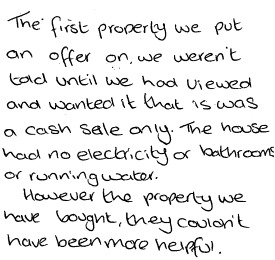 The first property we put
an offer on, we weren't
told until we had viewed
and wanted it that is was
a cash sale only. The house
had no electricity or bathrooms
or running water.
However the property we
have bought, they couldn't
have been more helpful.